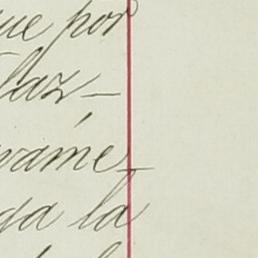 que por
laz-
vame-
ga la